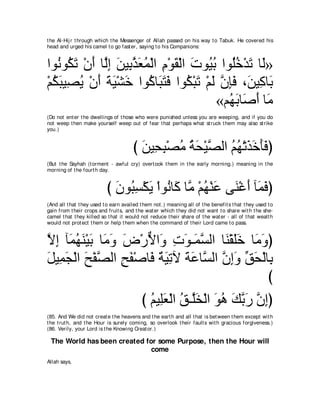 the Al-Hijr through which the Messenger of Allah passed on his way to Tabuk. He covered his
head and urged his camel to go faster, saying to his Companions:
«لَا تَدْخُلُوا بُيُوتَ الْقَوْمِ الْمُعَذَّبِينَ إِلَّا أَنْ تَكُونُوا
بَاكِينَ، فَإِنْ لَمْ تَبْكُوا فَتَبَاكَوُا خَشْيَةَ أَنْ يُصِيبَكُمْ
مَا أَصَابَهُم»
(Do not enter the dwellings of those who were punished unless you are weeping, and if you do
not weep then make yourself weep out of fear that perhaps what struck them may also strike
you.)
(فَأَخَذَتْهُمُ الصَّيْحَةُ مُصْبِحِينَ )
(But the Sayhah (torment - awful cry) overtook them in the early morning.) meaning in the
morning of the fourth day.
(فَمَآ أَغْنَى عَنْهُمْ مَّا كَانُواْ يَكْسِبُونَ )
(And all that they used to earn availed them not.) meaning all of the benefits that they used to
gain from their crops and fruits, and the water which they did not want to share with the she-
camel that they killed so that it would not reduce their share of the water - all of that wealth
would not protect them or help them when the command of their Lord came to pass.
(وَمَا خَلَقْنَا السَّمَـوَتِ وَالأَرْضَ وَمَا بَيْنَهُمَآ إِلاَّ
بِالْحَقِّ وَإِنَّ السَّاعَةَ لآتِيَةٌ فَاصْفَحِ الصَّفْحَ الْجَمِيلَ
(
(إِنَّ رَبَّكَ هُوَ الْخَلَّـقُ الْعَلِيمُ )
(85. And We did not create the heavens and the earth and all that is between them except with
the truth, and the Hour is surely coming, so overlook their faults with gracious forgiveness.)
(86. Verily, your Lord is the Knowing Creator.)
The World has been created for some Purpose, then the Hour will
come
Allah says,